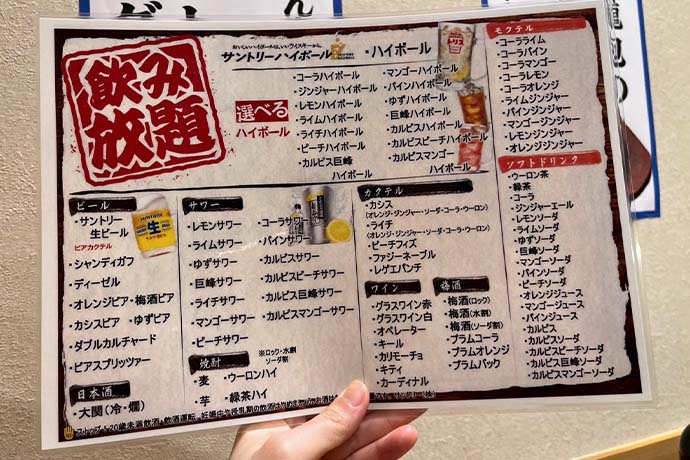 飲み
放題
おいしいハイボールは、いいウイスキーから。
サントリーハイボール
・ハイボール
選べる
ハイボール
・コーラハイボール
・ジンジャーハイボール
・レモンハイボール
・ライムハイボール
・ライチハイボール
・ピーチハイボール
・カルピス巨峰
ハイボール
・マンゴーハイボール
・パインハイボール
・ゆずハイボール
・巨峰ハイボール
・カルピスハイボール
・カルピスマンゴー
ハイボール
モクテル
・コーラライム
・コーラパイン
・コーラマンゴー
・コーラレモン
・コーラオレンジ
・ライムジンジャー
・パインジンジャー
・マンゴージンジャー
・レモンジンジャー
・オレンジジンジャー
ソフトドリンク
・ウーロン茶
・緑茶
・コーラ
・ジンジャーエール
・レモンソーダ
・ライムソーダ
・ゆずソーダ
・巨峰ソーダ
・マンゴーソーダ
・パインソーダ
・ピーチソーダ
・オレンジジュース
・マンゴージュース
・パインジュース
・カルピス
・カルピスソーダ
・カルピスピーチソーダ
・カルピス巨峰ソーダ
・カルピスマンゴーソーダ
ビール
・サントリー
生ビール
ビアカクテル
・シャンディガフ
・ディーゼル
・オレンジビア・梅酒ビア
・カシスビア ・ゆずビア
・ダブルカルチャード
・ビアスプリッツァー
日本酒
・大関(冷・燗)
サワー
・レモンサワー
・ライムサワー
・ゆずサワー
・巨峰サワー
・ライチサワー
・マンゴーサワー
・ピーチサワー
・コーラサワー
・パインサワー
・カルピスサワー
・カルピスピーチサワー
・カルピス巨峰サワー
・カルピスマンゴサワー
焼酎
※ロック・水割
ソーダ割
・麦 ・ウーロンハイ
・芋 ・緑茶ハイ
カクテル
・カシス
(オレンジ・ジンジャー・ソーダ・コーラ・ウーロン)
・ライチ
(オレンジ・ジンジャー・ソーダ・コーラ・ウーロン)
・ピーチフィズ
・ファジーネーブル
・レゲエパンチ
ワイン
・グラスワイン赤
・グラスワイン白
・オペレーター
・キール
・カリモーチョ
・キティ
・カーディナル
梅酒
・梅酒(ロック)
・梅酒(水割)
・梅酒(ソーダ割)
・プラムコーラ
・プラムオレンジ
・プラムバック
ストップ!20歳未満飲酒・飲酒運転。